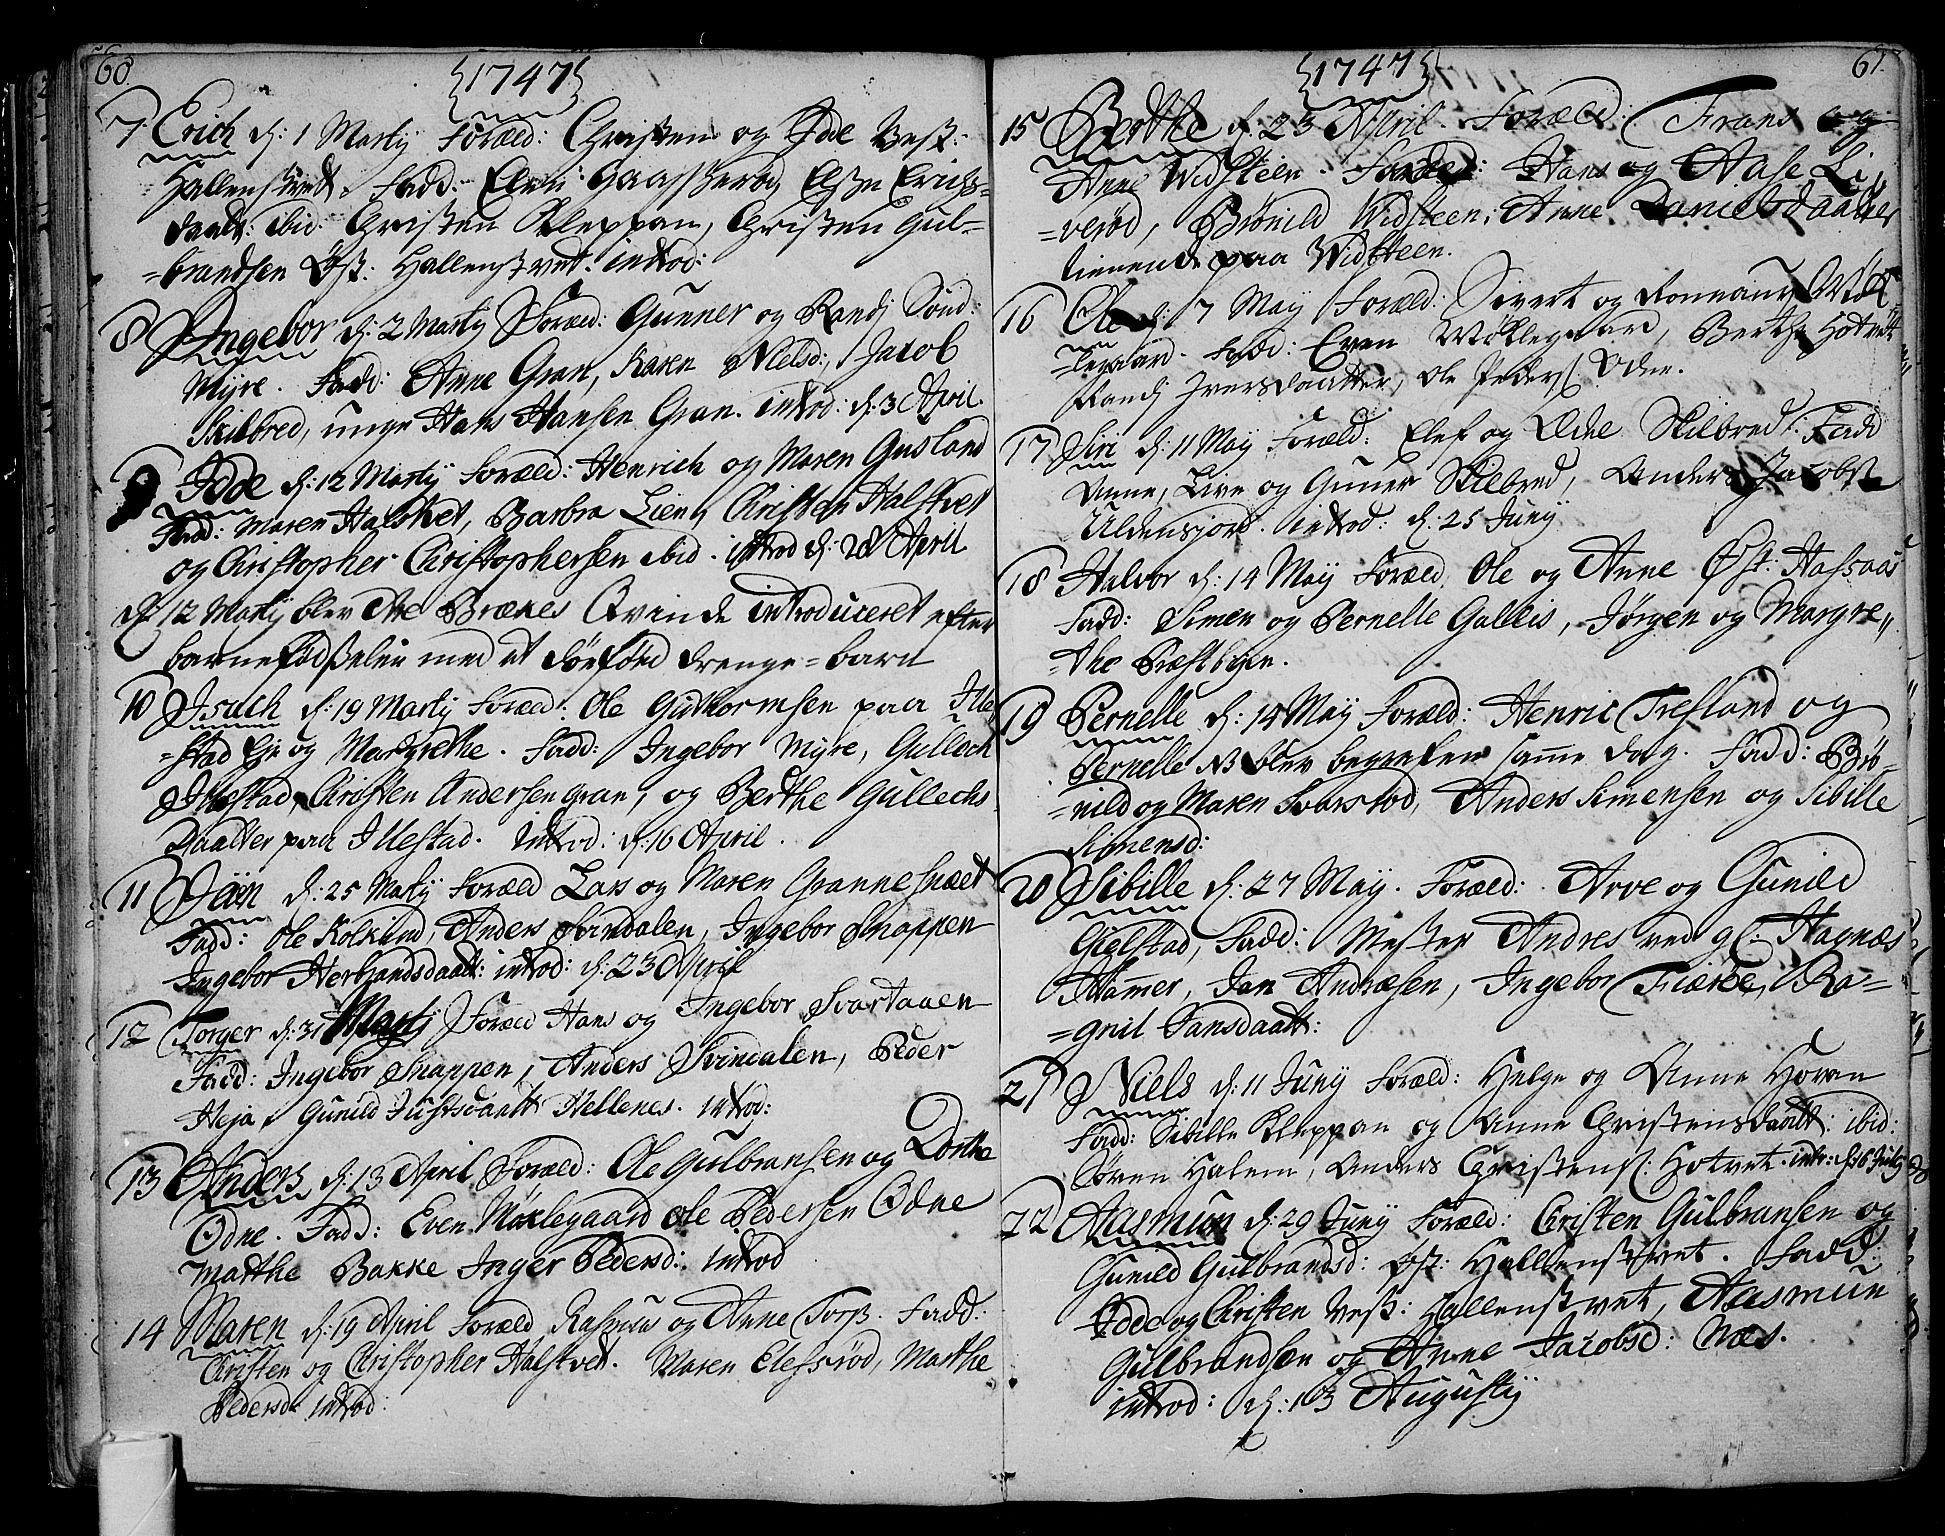 60.
{1747}
7 Erich d: 1 Martij Foræld: Christen og Idde Vest:
Hallenstvedt. Fadd: Elen Gaasserød, Else Erichs-
daatt: ibid: Christen Kleppan, Christen Gul-
=brandsen Øst: Hallenstvet. introd:
8 Ingebor d: 2 Martij Foræld: Gunner og Randj Sönd:
Myre. Fadd: Anne Gran, Karen Nielsd:, Jacob
Skilbred, unge Hans Hansen Gran. introd: d: 3 April.
9 Idde d: 12 Martij Foræld: Henrich og Maren Gusland
Fadd: Maren Halstvet, Barbra Lien, Christen Halstvet
og Christopher Christophersen ibid. introd d: 20 April
d: 12 Martij blev Brækes Qvinde introduceret efter
barnefødselen med et dödföd drenge=barn
10 Isach d: 19 Martij Foræld: Ole Guthormsen paa Ille-
=stad Eje og Margrethe. Fadd: Ingebor Myre, Gulloch
Illestad, Christen Andersen Gran, og Berthe Gullechs
Daatter paa Illestad. Introd: d: 16 April.
11 Jöen d: 25 Martij Foræld Lars og Maren Grannesnæet
Fadd: Ole Kolkind, Anders Svindalen, Ingebor Snappen
Ingebor Herbrandsdaatt: introd: d: 23 April
12 Torger d: 31 Martij Foræld Hans og Ingebor Svartaaen
Fadd: Ingebor Snappen, Anders Svindalen, Peder
Heja, Gunild Justsdaatt Hellenes. introd:
13 Anders d: 13 April Foræld: Ole Gulbransen og Dorthe
Odne. Fadd: Even Møklegaard Ole Pedersen Odne
Marthe Bakke Inger Pedersd: introd
14 Maren d: 19 April Foræld, Rasmus og Anne Torp. Fadd:
Christen og Christopher Halstvet. Maren Elefsröd, Marthe
Pedersd: introd:
61.
{1747}
15 Berthe d: 23 April. Foræld: Frans og
Anne Widsteen. Fadd: Hans og Aase Li-
=veröd, Brönild Widsteen, Anne Danielsdaatter
tienende paa Widsteen.
16 Ole d: 7 May Foræld: Sivert og Ronnaug Møk-
=legaard. Fad: Even Møklegaard, Berthe Hotvet
Randj Iversdaatter, Ole Peders: Odne.
17 Siri d: 11 May Foræld: Elef og Edne Skilbred. Fadd
Anne, Live og Guner Skilbred, Anders Jacobs:
Uldensjord. introd: d: 25 Junij
18 Halvor d: 14 Maij Foræld, Ole og Anne Øst: Hassaas
Fadd: Simen og Pernelle Gallis, Jørgen og Margre,,
=the Præstbyen.
19 Pernelle d: 14 May Foræld: Henric Trefland og
Pernelle NB blev begraven samme dag. Fadd: Brö-
=nild og Maren Svarstad, Anders Simensen og Sibille
Simensd:
20 Sibille d: 27 May. Foræld: Arve og Gunild
Gielstad, Fadd: Mester Andres ved gl: Hagnæs
Hammer, Jan Andræsen, Ingebor Fierke, Ra-
=gnil Jansdaatt:
21 Niels d: 11 Junij Foræld: Helge og Anne Hovan
Fadd: Sibille Kleppan og Anne Christensdaatt: ibid:
Sören Halem, Anders Christens: Hotvet. intr: d: 16 July
22 Aasmun d: 29 Junij Foræld: Christen Gulbransen og
Gunild Gulbrandsd: Øst: Hallenstvet. Fadd:
Idde og Christen Vest: Hallenstvet, Aasmun
Gulbrandsen og Anne Jacobsd: Næs.
introd: d: 13 Augustij